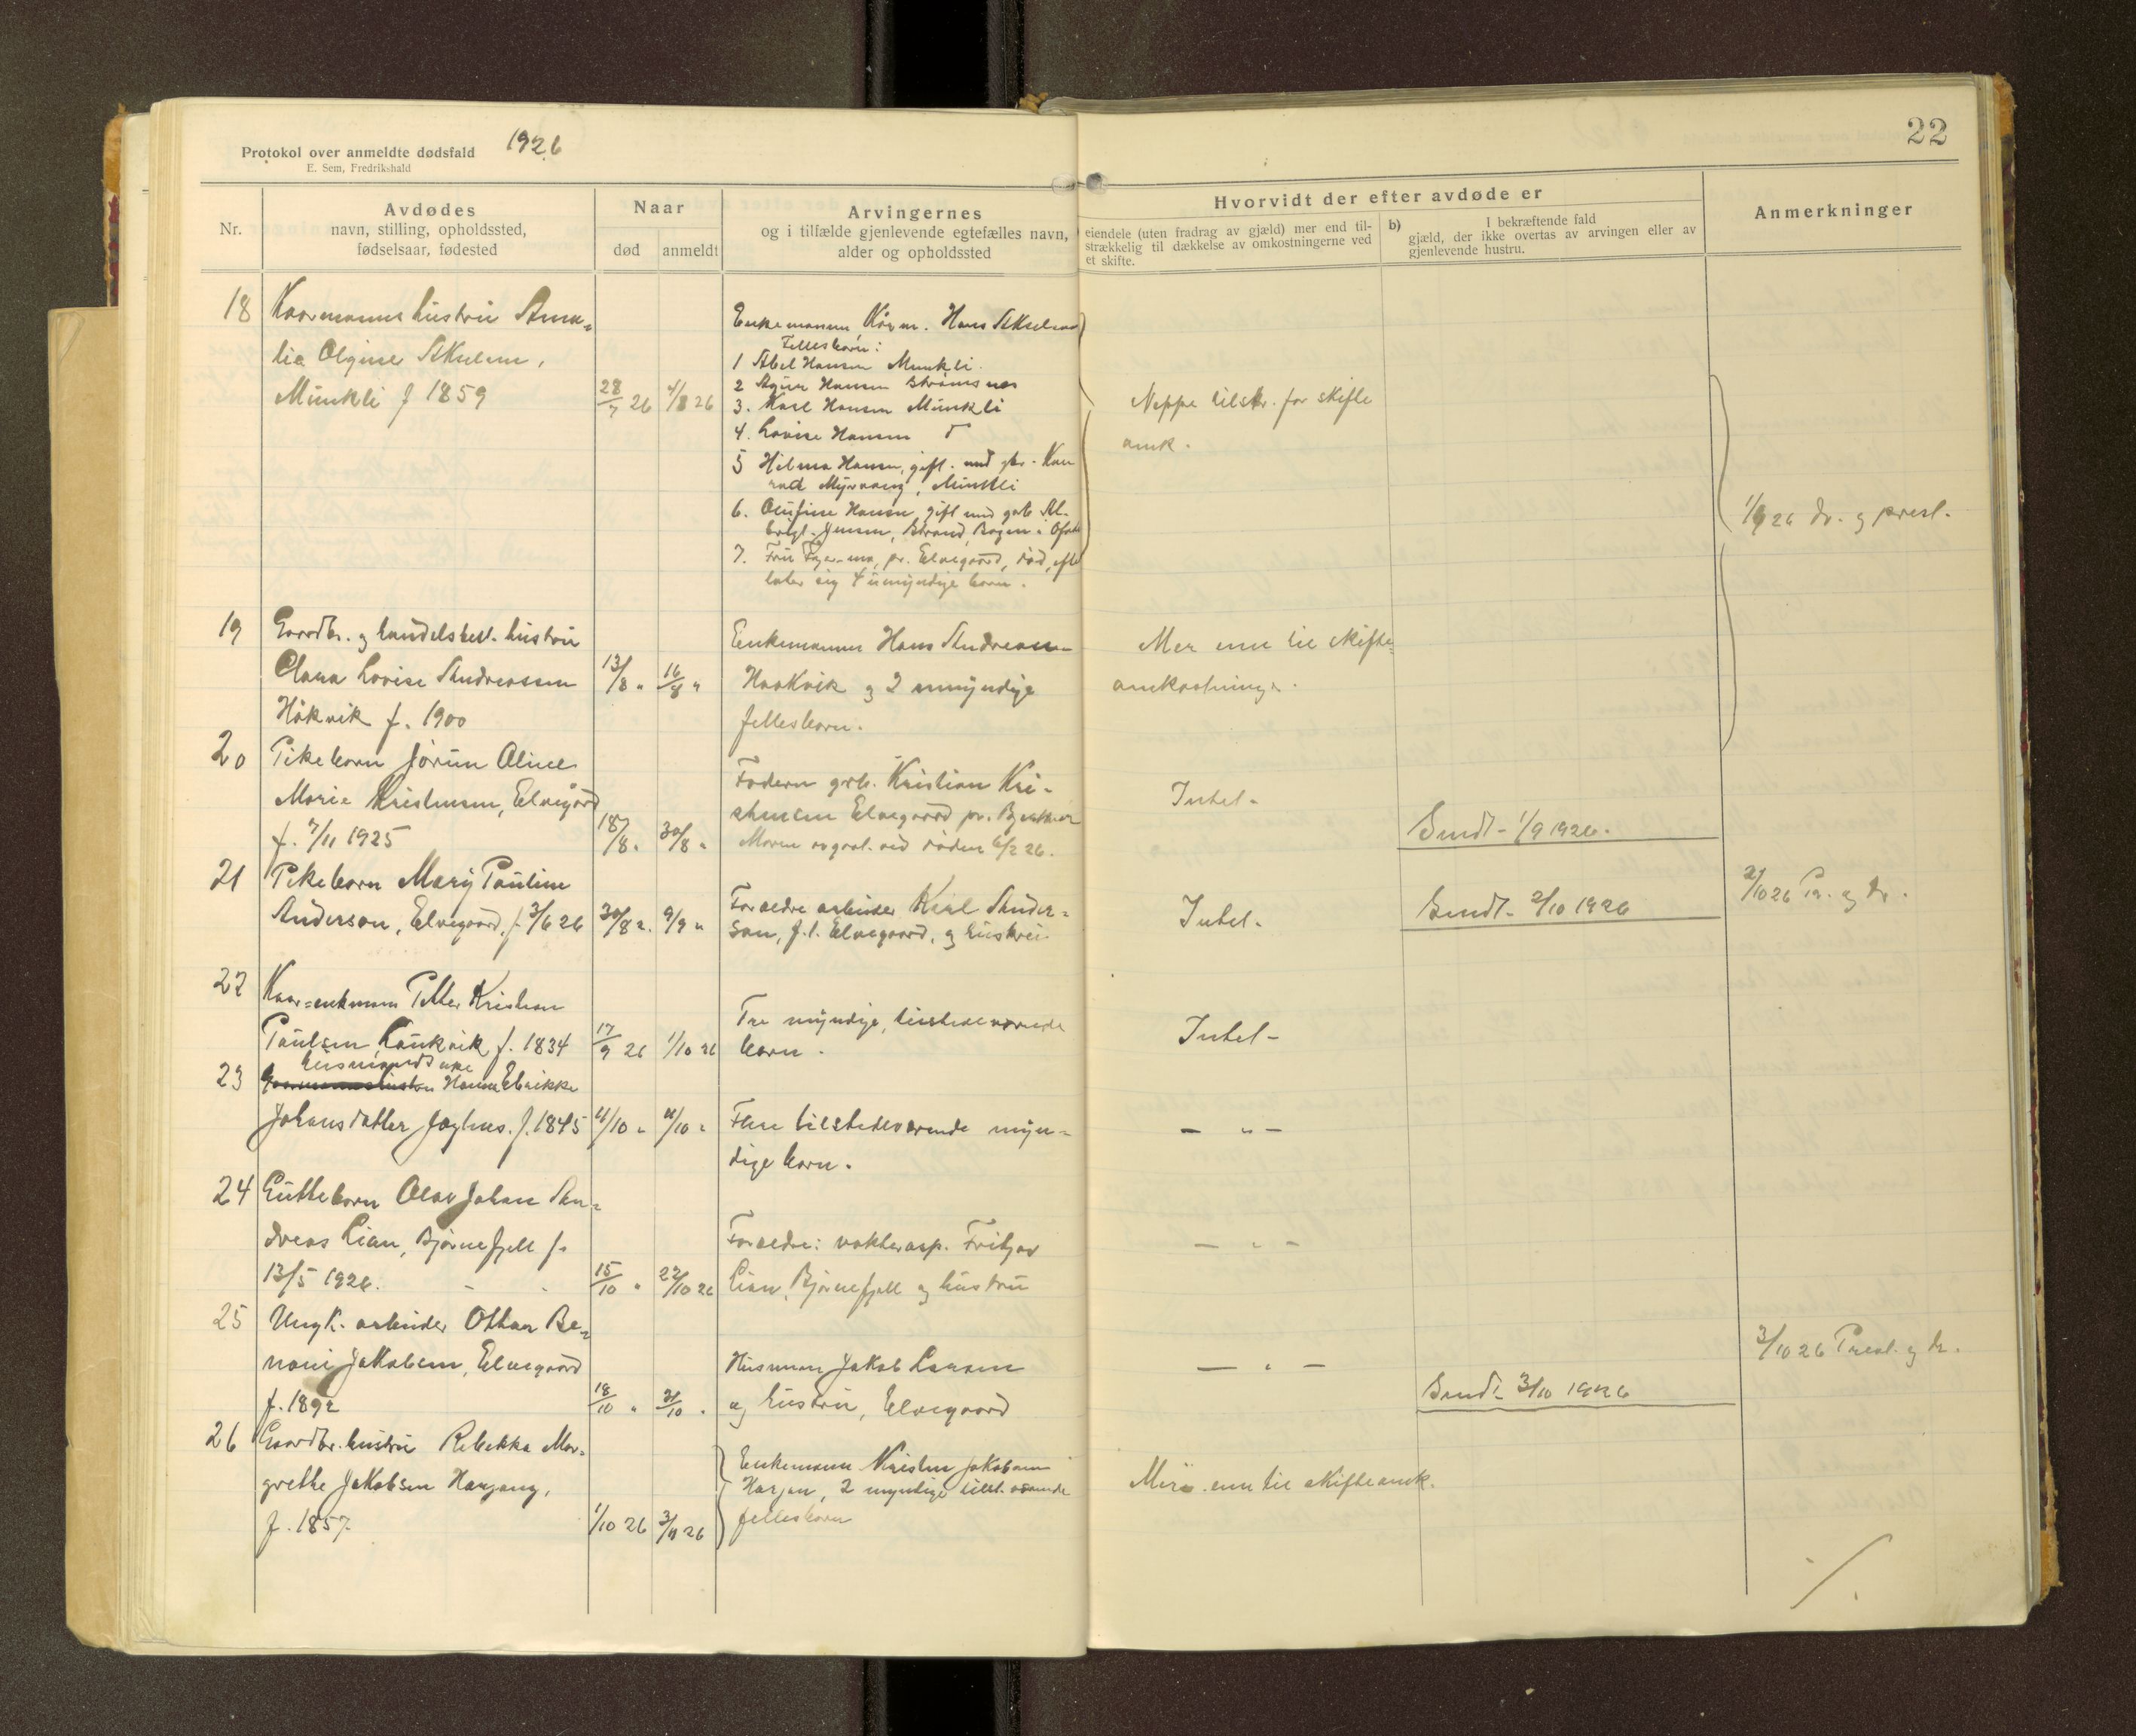 Protokol over anmeldte dødsfald 1926
E. Sem, Fredrikshald
22
Nr.
Avdødes
navn, stilling, opholdssted,
fødselsaar, fødested
Naar
død
anmeldt
Arvingernes
og i tilfælde gjenlevende egtefælles navn,
alder og opholdssted
Hvorvidt der efter avdøde er
eiendele (uten fradrag av gjæld) mer end til-
strækkelig til dækkelse av omkostningerne ved
et skifte.
b)
I bekræftende fald
gjæld, der ikke overtas av arvingen eller av
gjenlevende hustru.
Anmerkninger
18
Kaarmanns hustru Ama-
lie Olgine
Munkli f 1859
28/7 26
4/8 26
Enkemann Kårm. Hans
Fellesborn:
1 Abel Hansen Munkli.
2 Hansen Strømsnes
3. Karl Hansen Munkli
4. Lovise Hansen
5 Hilma Hansen, gift med Kon
rad Myrvang, Munkli
6. Olufine Hansen, gift med
Jensen, Strand, Bogen i Ofoten
7. Fru pr. Elvegaard, død, efter
later sig 4 umyndige born.
Neppe tilstr. for skifte
omk.
1/9 26 dr. og prest.
19
Gaardbr. og handelsbest. hustru
Clara Lovise Andreassen
Håkvik f. 1900
13/8 "
16/8 "
Enkemann Hans Andreassen
Haakvik og 2 umyndige
fellesborn.
Mer enn til skifte-
omkostninger.
20
Pikeborn Jorun Aline
Marie Kristensen, Elvegård
f. 7/11 1925
18/8 "
30/8 "
Faderen grb. Kristian Kri-
stensen Elvegaard pr. Bjerkvik
Moren avgaat ved døden 6/2 26.
Intet -
Sendt - 1/9 1926.
21
Pikeborn Mary Pauline
Anderson, Elvegaard, f. 3/6 26
30/8 "
9/9 "
Foraeldre arbeider Karl Ander-
son, f.t. Elvegaard, og hustru
Intet -
Sendt - 2/10 1926
2/10 26 Pr. og dr.
22
Kaar-enkemann Petter Kristian
Paulsen Laukvik f. 1834
17/9 26
1/10 26
Tre myndige, tilstedevaerende
born.
Intet -
23
husmands enke
Hanna Elrikke
Johansdatter f. 1845
4/10 "
4/10 "
Flere tilstedevaerende myn-
dige born.
- " -
24
Gutteborn Olav Johan An-
dreas Lian, Bjørnefjell f.
13/5 1926.
15/10 "
22/10 26
Foraeldre: vokterasp. Fritjov
Lian, Bjørnefjell og hustru
- " -
25
Ungk. arbeider Othar Be-
noni Jakobsen, Elvegaard
f. 1892
18/10 "
21/10 "
Husmann Jakob Larsen
og hustru, Elvegaard
- " -
Sendt - 3/10 1926
3/10 26 Prest. og dr.
26
Gaardbr. hustru Rebekka Mar-
grethe Jakobsen Hergang,
f. 1857
1/10 26
3/11 26
Enkemann Kristen Jakobsen
2 myndige tilst. vaerende
fellesborn
Mer enn til skifteomk.